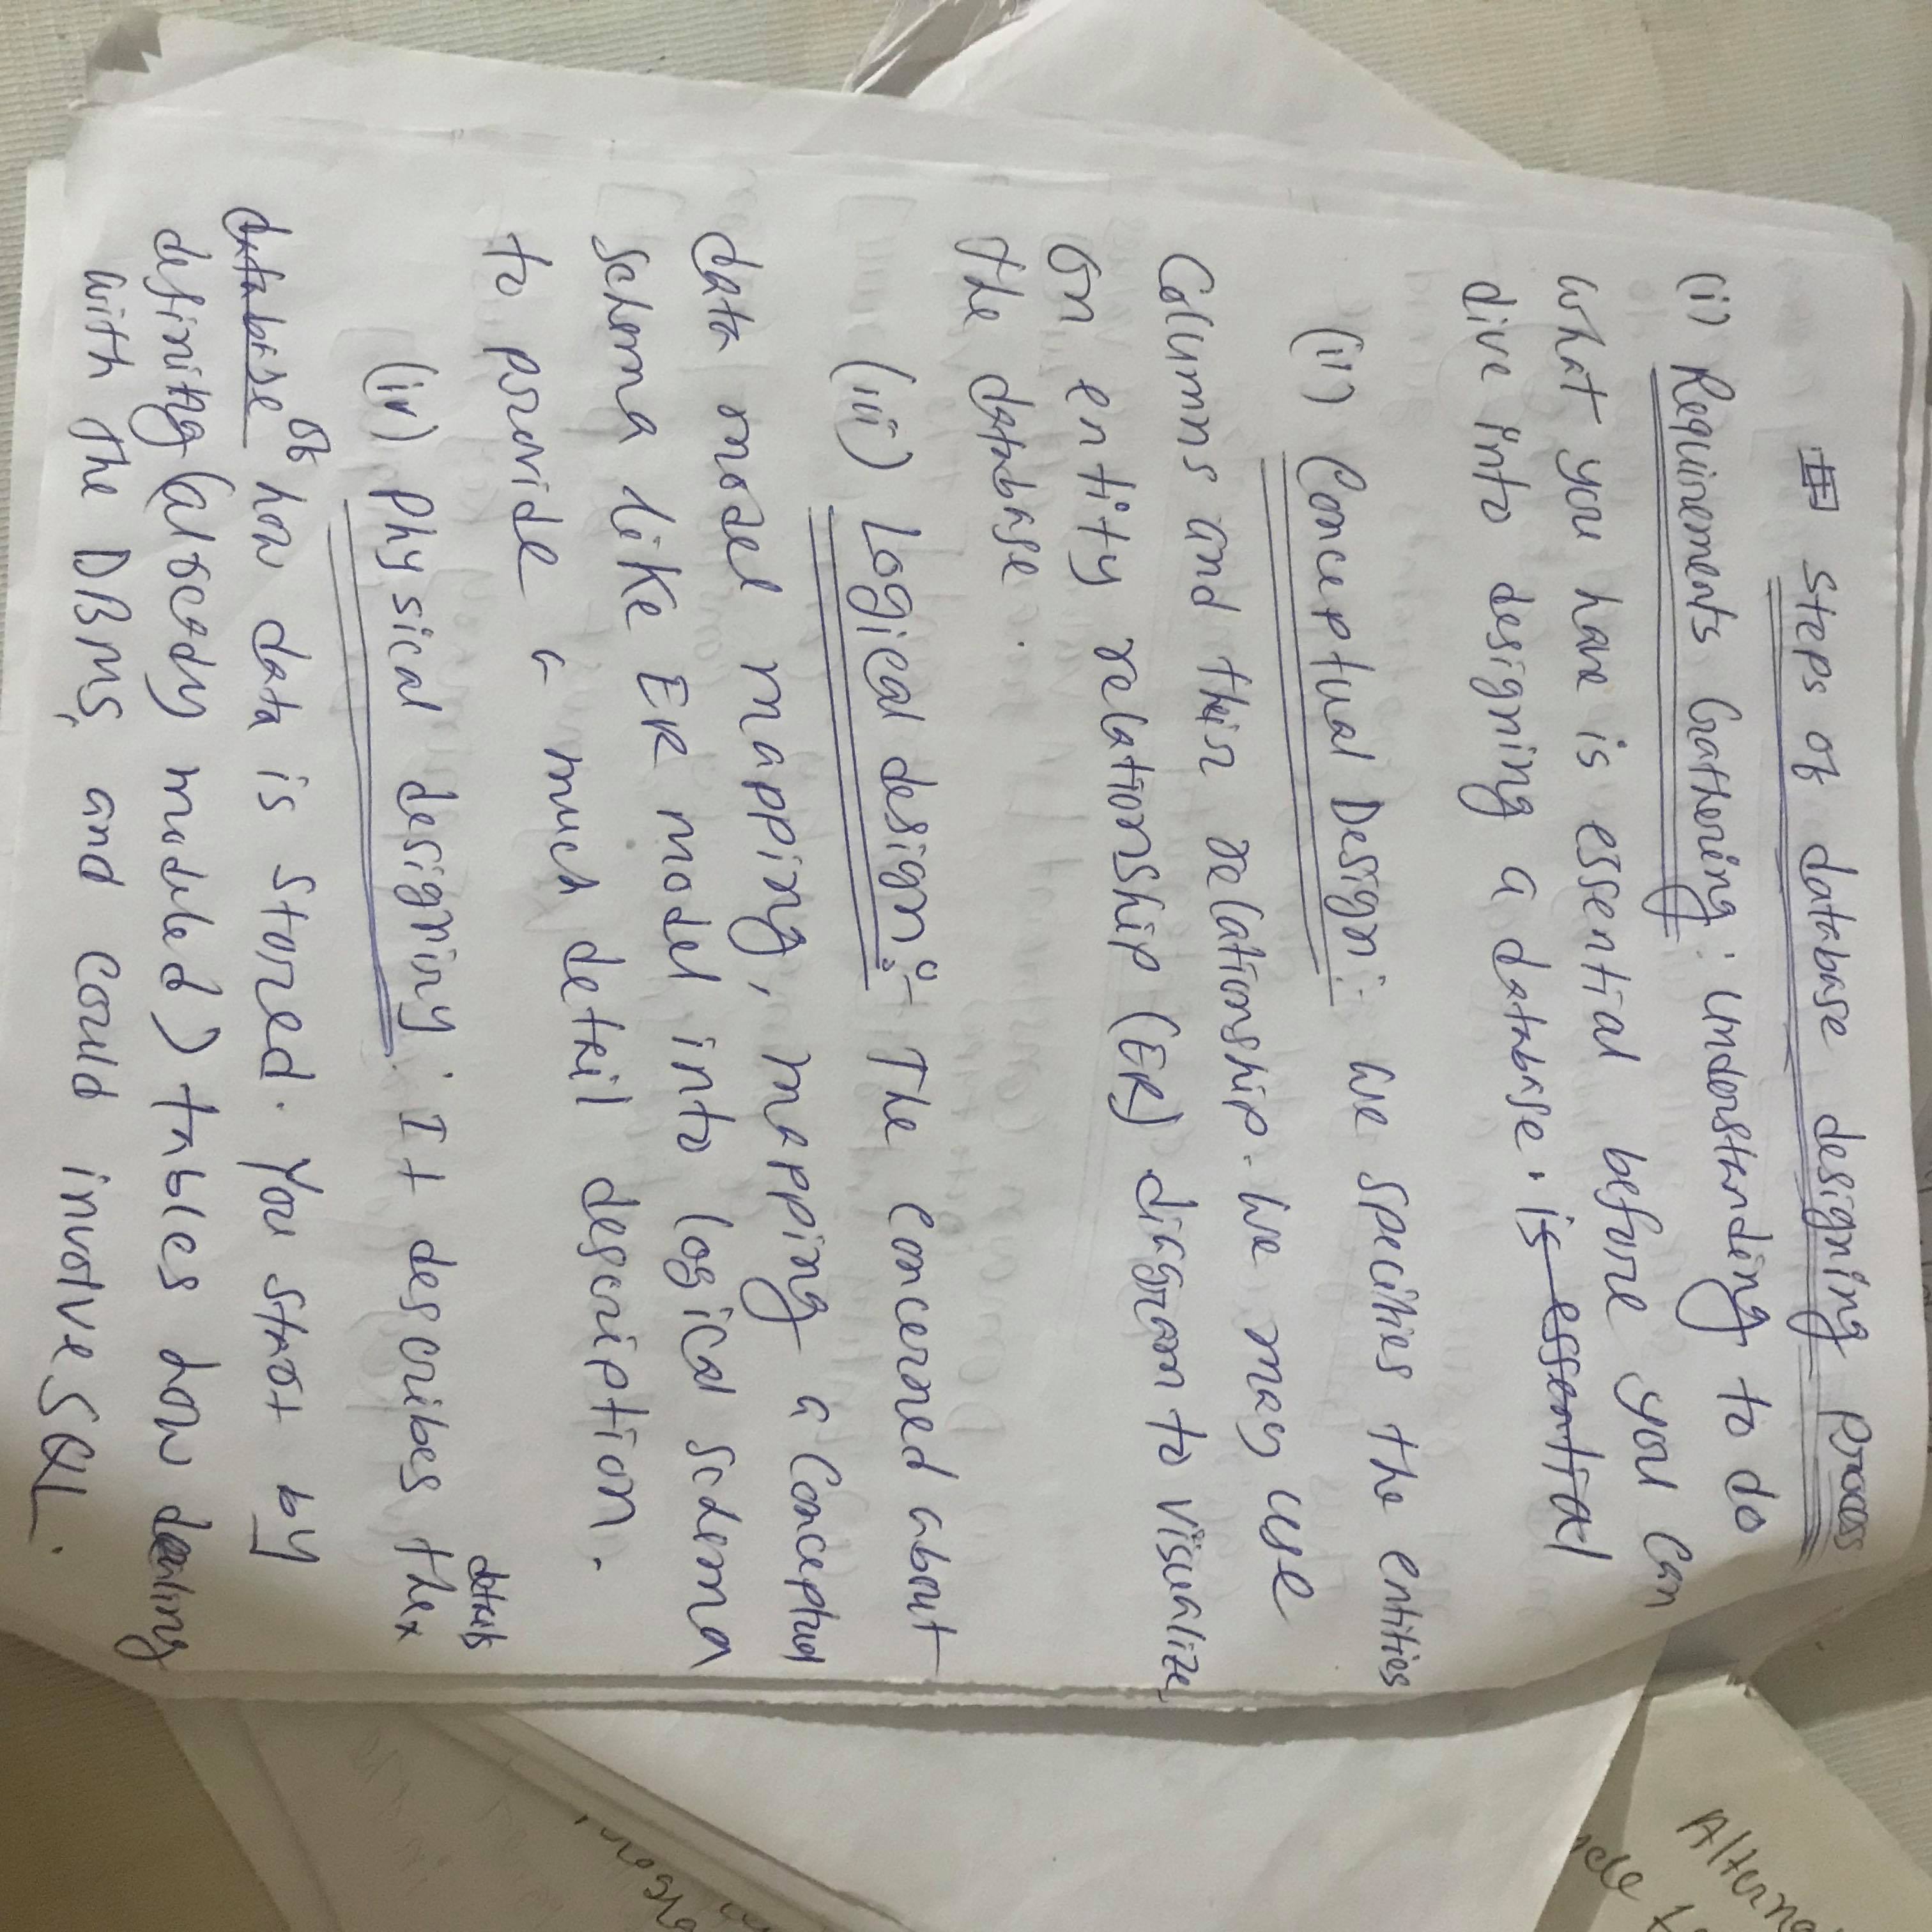 Steps of database designing process
(i) Requirements Gathering: Understanding to do
what you have is essential before you can
dive into designing a database. is essential
(ii) Conceptual Design:- We specifies the entities
Columns and their relationship. We may use
on entity relationship (ER) diagram to visualize
the database.
(iii) Logical design:- The concerned about
data model mapping, mapping a Conceptual
schema like ER model into logical schema
to provide a much detail description.
details
(iv) Physical designing: It describes the
database of how data is stored. You start by
defining (already modeled) tables how dealing
with the DBMS, and could involve SQL.
Altern
cle